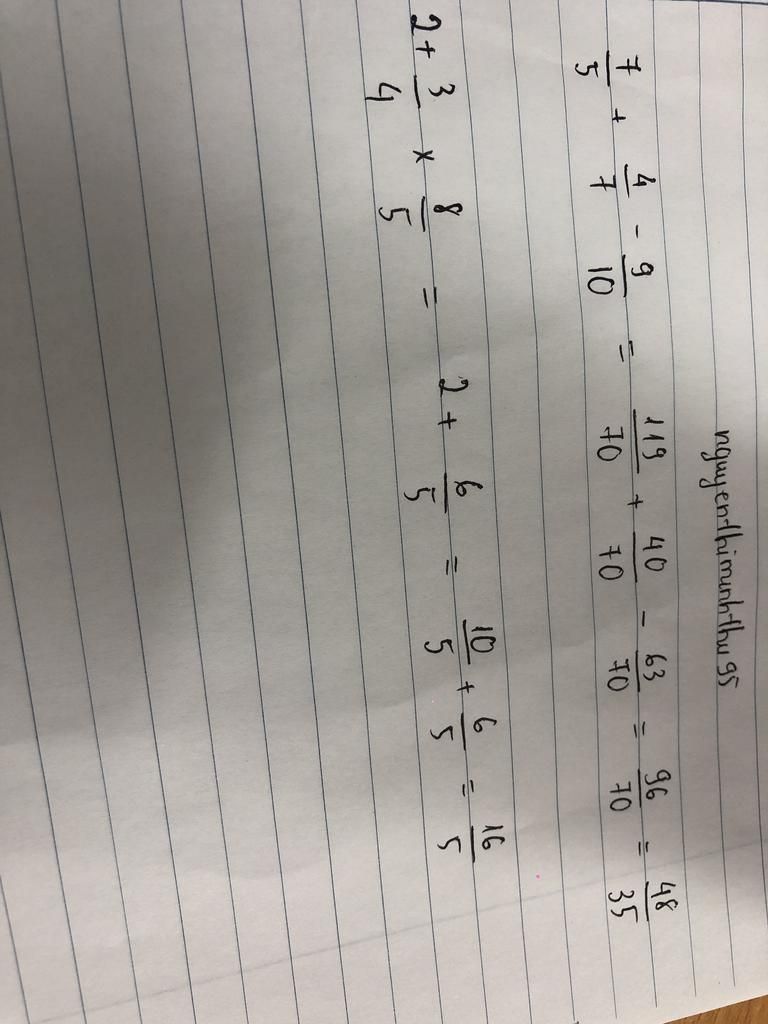 nguyenthiminhthu95
7/5 + 4/7 - 9/10 = 119/70 + 40/70 - 63/70 = 96/70 = 48/35
2 + 3/4 × 8/5 = 2 + 6/5 = 10/5 + 6/5 = 16/5